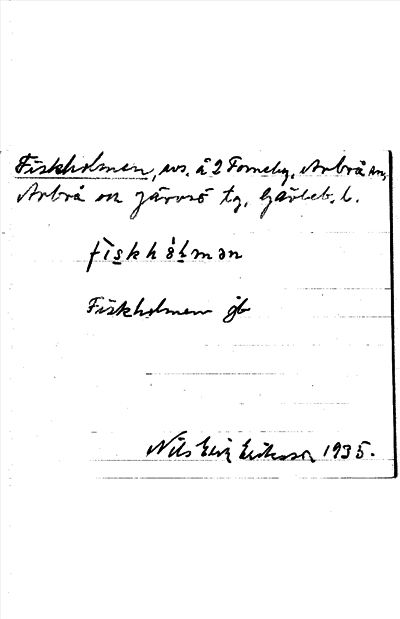 Fiskholmen, avs. å 2 Forneby, Arbrå sn,
Arbrå och Järvsö tg, Gävleb. l.
fìskhòlmən
Fiskholmen jb
Nils Erik Eriksson 1935.